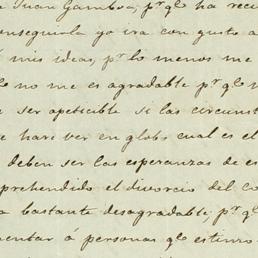 Juan Gamboa, pr. qlo ha recu
conseguirla yo ira con gusto a
mis ideas, pr. lo menos me
no me es agradable pr. qlo
ser apeticible si las circunst
hari ver en globo cual es el
deben ser las esperanzas de es
prehendido el divorcio del co
a bastante desagradable, pr. qlo
mentar á personas qlo estimo